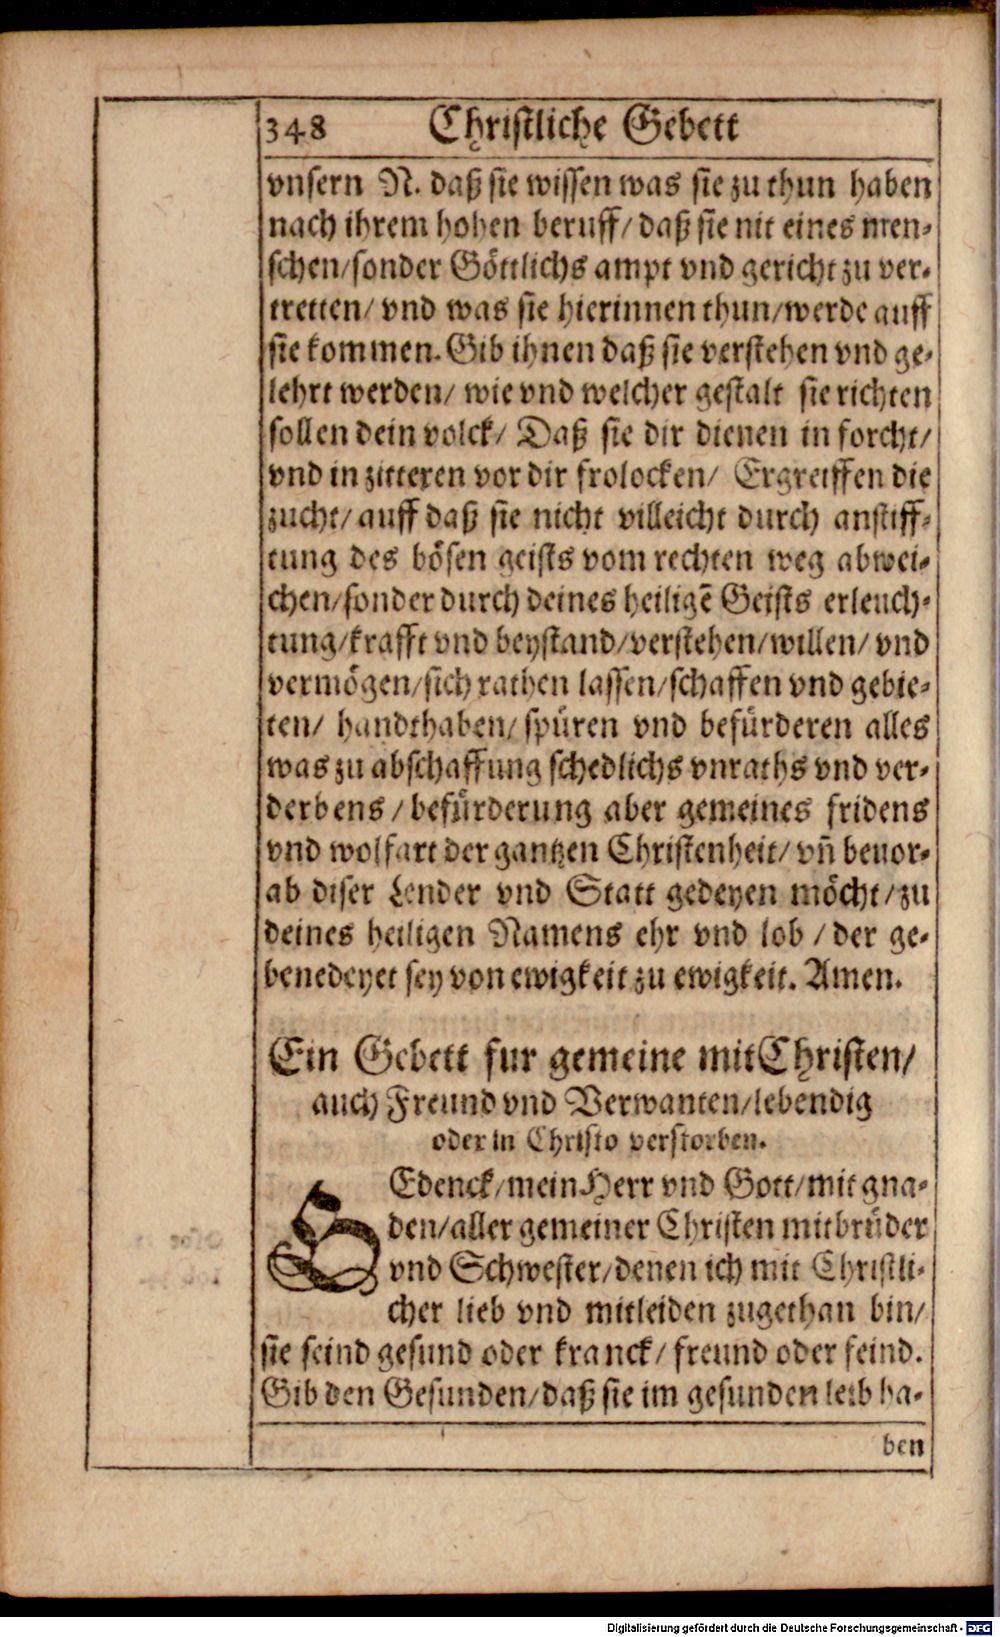 348 Christliche Gebett
vnsern N. daß sie wissen was sie zu thun haben
nach ihrem hohen beruff/ daß sie nit eines men-
schen/sonder Göttlichs ampt vnd gericht zu ver-
tretten/ vnd was sie hierinnen thun/werde auff
sie kommen. Gib ihnen daß sie verstehen vnd ge-
lehrt werden/ wie vnd welcher gestalt sie richten
sollen dein volck/ Daß sie dir dienen in forcht/
vnd in zitteren vor dir frolocken/ Ergreiffen die
zucht/ auff daß sie nicht villeicht durch anstiff-
tung des bösen geists vom rechten weg abwei-
chen/sonder durch deines heiligē Geists erleuch-
tung/krafft vnd beystand/verstehen/willen/ vnd
vermögen/sich rathen lassen/schaffen vnd gebie-
ten/ handthaben/ spüren vnd befürderen alles
was zu abschaffung schedlichs vnraths vnd ver-
derbens /befürderung aber gemeines fridens
vnd wolfart der gantzen Christenheit/ vñ beuor-
ab diser Lender vnd Statt gedeyen möcht/zu
deines heiligen Namens ehr vnd lob / der ge-
benedeyet sey von ewigkeit zu ewigkeit. Amen.
Ein Gebett fur gemeine mitChristen/
auch Freund vnd Verwanten/lebendig
oder in Christo verstorben.
GEdenck/mein Herr vnd Gott/mit gna-
den/aller gemeiner Christen mitbrüder
vnd Schwester/denen ich mit Christli-
cher lieb vnd mitleiden zugethan bin/
sie seind gesund oder kranck/ freund oder feind.
Gib den Gesunden/daß sie im gesunden leib ha-
ben
Digitalisierung gefördert durch die Deutsche Forschungsgemeinschaft - DFG